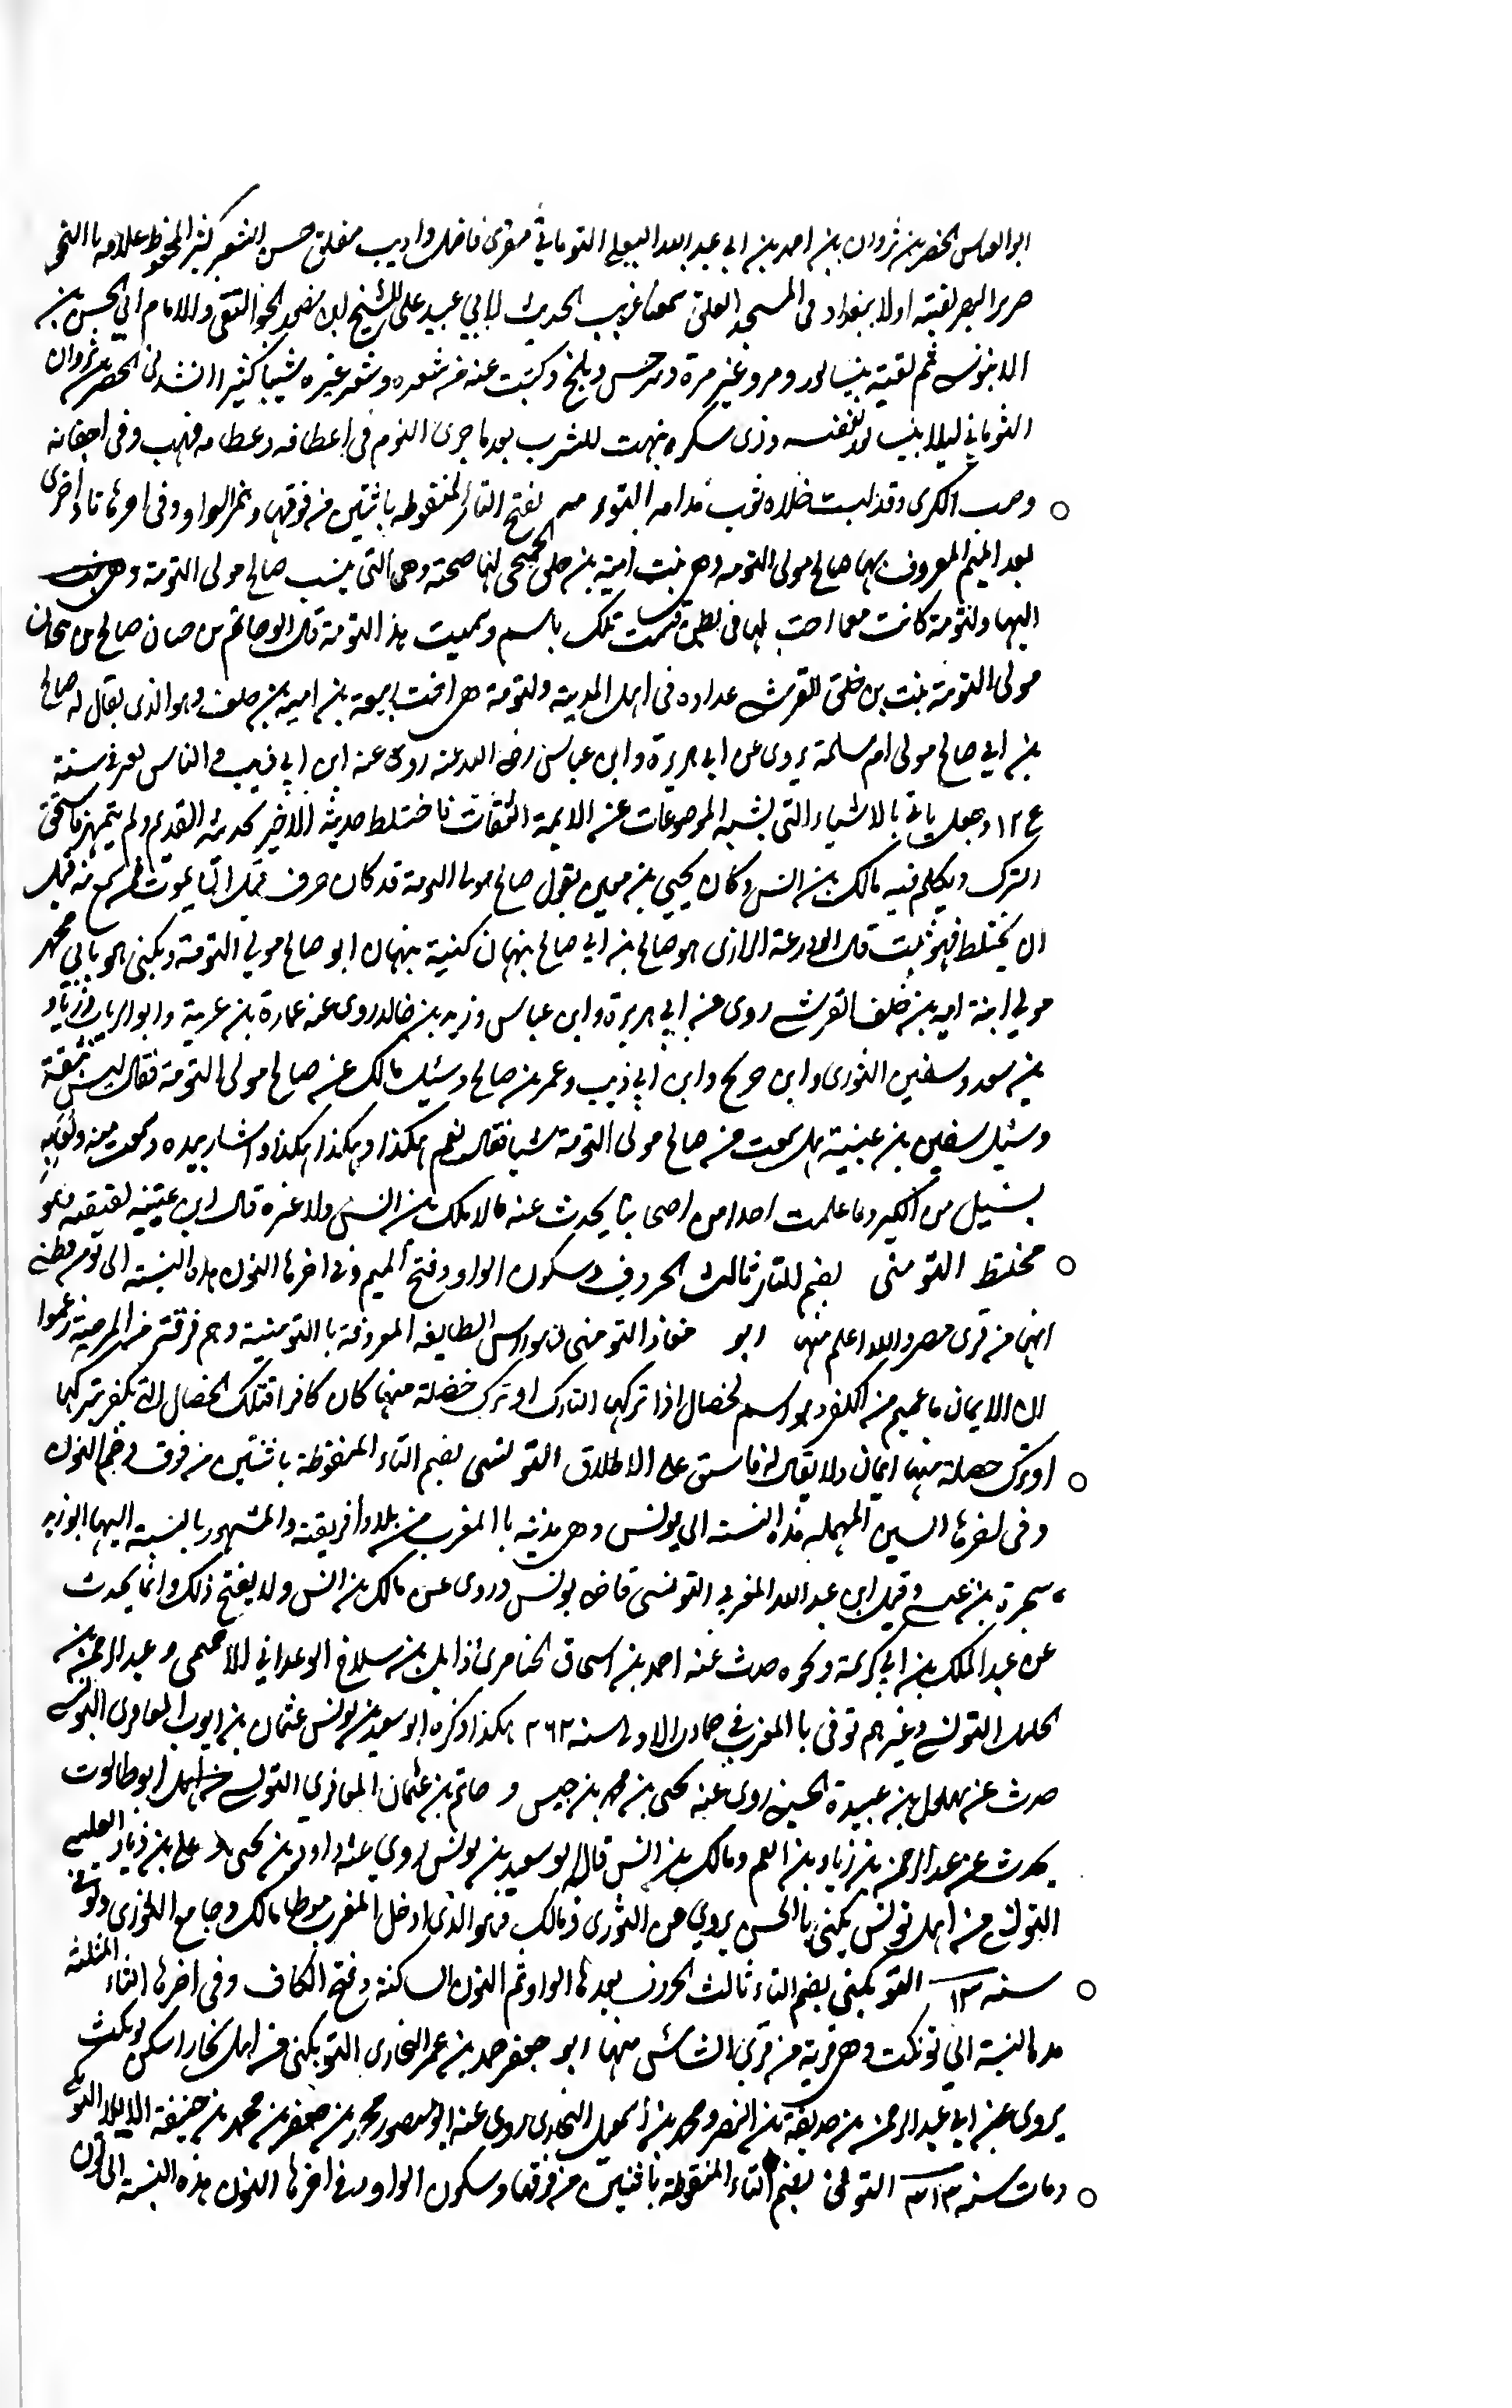 ابو العباس الخضر بن ثروان بن احمد بن ابي عبد الله الثعلبي التوماثي مقرى فاضل واديب مفلق حسن الشعر كثير المحفوظ علامة باالنحو
ضرير البصر لقيته اولا ببغداد في المسجد المعلق سمعنا غريب الحديث لابي عبيد على الشيخ ابن منصور الجواليقي والامام ابي الحسن بن
الابنوسي ثم لقيته بنيسابور ومرو غير مرة وسرخس وبلخ وكتبت عنه من شعره وشعر غيره شيبا كثيرا انشدني الخضر بن ثروان
التوماثي ليلا بنيسابور لنفسه وذى سكره نبهت للشرب بعد ما جرى النوم في اعطافه وعظامه فهب وفي اجفانه
الكرى وقد لبست عيناه ثوب مدامه التومى بفتح التا المنقوطه باثنتين من فوقها وضم الواو وفي اخرها تا اخرى
بعد الميم المعروف بها صالح مولى التومه وهى بنت امية بن خلف الجمحي لها صحبة وهى التى ينسب صالح مولى التومة
اليها والتومة كانت معها اخت لها في بطن فسميت تلك باسم وسميت هذه التومة قال ابو حاتم بن حبان صالح بن نبهان
مولى التومة بنت بن خلف القرشي عداده في اهل المدينة والتومة هى اخت ربيعة بن امية بن خلف وهو الذى يقال له صالح
بن ابي صالح مولى ام سلمة يروى عن ابي هريرة وابن عباس رضى الله عنه روى عنه ابن ابي ذيب والناس تغير في سنة
١٢ع وجعل ياتي بالاشياء التى يشبه الموضوعات عن الايمة الثقات فاختلط حديثه الاخير بحديثه القديم ولم يتميز فاستحق
الترك ويكلم فيه مالك بن انس وكان يحيي بن معين يقول صالح مولى التومة قد كان خرف قبل ان يموت فمن سمع منه قبل
ان يختلط فهو ثبت قال ابو زرعة الرازى هو صالح بن ابي صالح بنهان كنية بنهان ابو صالح مولى التومة ويكنى هو بابي محمد
مولي ابنة امية بن خلف القرشي روى عن ابي هريرة وابن عباس وزيد بن خالد روى عنه عمارة بن غزية وابو الزياد وزياد
بن سعد وسفين الثورى وابن جريح وابن ابي ذيب وعمر بن صالح وسئل مالك عن صالح مولى التومة فقال ليس بثقة
وسئل سفين بن عيينية هل سمعت من صالح مولى التومة شيا فقال نعم هكذا وهكذا هكذا واشار بيده وسمعت منه ولعابه
يسيل من الكبر وما علمت احدا من اصحابنا يحدث عنه لا مالك بن انس ولا غيره قال ابن عيينه لقيته وهو
مختلط التومنى بضم التا ثالث الحروف وسكون الواو وفتح الميم وفي اخرها النون هذه النسبة الى تومن وظنى
انها من قرى مصر والله اعلم منها ابو معاذ التومنى هو راس الطايفه المعروفة باالتومنية وهم فرقة من المرجية زعموا
ان الايمان ما عصم من الكفر وهو اسم لخصال اذا تركها التارك او ترك خصلة منها كان كافرا فتلك الخصال التى يكفر بتركها
او ترك خصلة منها ايمان ولا يقال له فاسق على الاطلاق التونسي بضم التاء المنقوطة باثنتين من فوق وضم النون
وفي اخرها السين المهمله هذه النسبه الى تونس وهى مدينة باالمغرب من بلاد افريقية والمشهور بالنسبة اليها ابو زيد
سجرة بن عيسى وقيل ابن عبد الله المغربي التونسى قاضى تونس وروى عن مالك بن انس ولا يفتح ذلك وانما يحدث
عن عبد الملك بن ابي كريمة ونحوه حدث عنه احمد بن اسحاق وعبد الرحمن بن
التونسي وغيرهم توفى باالمغرب في جمادى الاولى سنه ٢٦٢ هكذا ذكره ابو سعيد بن يونس عثمان بن ايوب المعافرى التونسي
حدث عن بهلول بن عبيدة روى عنه يحيى بن محمد بن و حاتم بن عثمان المعافري التونسي من اهل ابو طالوت
يحدث عن عبد الرحمن بن زياد بن انعم ومالك بن انس قال ابو سعيد بن يونس روى عنه داود بن يحيى علي بن زياد العبسي
التونسي من اهل تونس يكنى باالحسن يروى عن الثورى ومالك وهو الذى ادخل المغرب موطا مالك وجامع الثورى وتوفي
سنه التونكثي بضم التاء ثالث الحروف بعدها الواو ثم النون الساكنة وفتح الكاف وفي اخرها الثاء المثلثة
هذه النسبة الي تونكث وهى قرية من قرى الشاش منها ابو جعفر حمد بن عمر البخارى التونكثي من اهل بخارا سكن تونكث
يروى عن ابي عبد الرحمن بن حذيفة بن النصر ومحمد بن اسمعيل البخارى روى عنه ابو منصور محمد بن جعفر بن محمد بن حنيفة
ومات سنه ٣١٣ التونى بضم التاء المنقوطة باثنتين من فوقها وسكون الواو وفي اخرها النون هذه النسبة الى تون